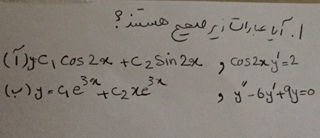 ۱. آیا عبارات زیر صحیح هستند؟
(آ) y=C₁ cos2x + C₂ Sin2x , cos2x y'=2
(ب) y = c₁e³ˣ + c₂xe³ˣ , y"-6y'+9y=0